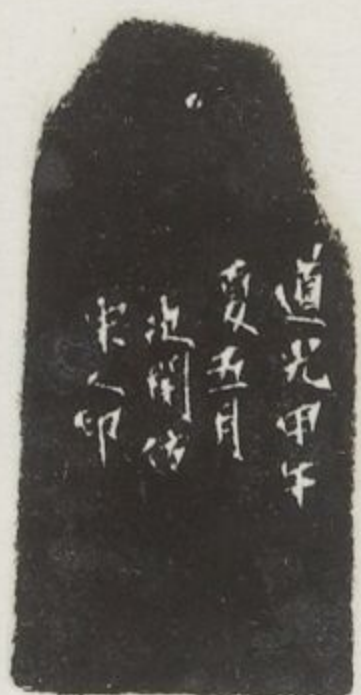 道光甲午
夏五月
次閑仿
宋人印